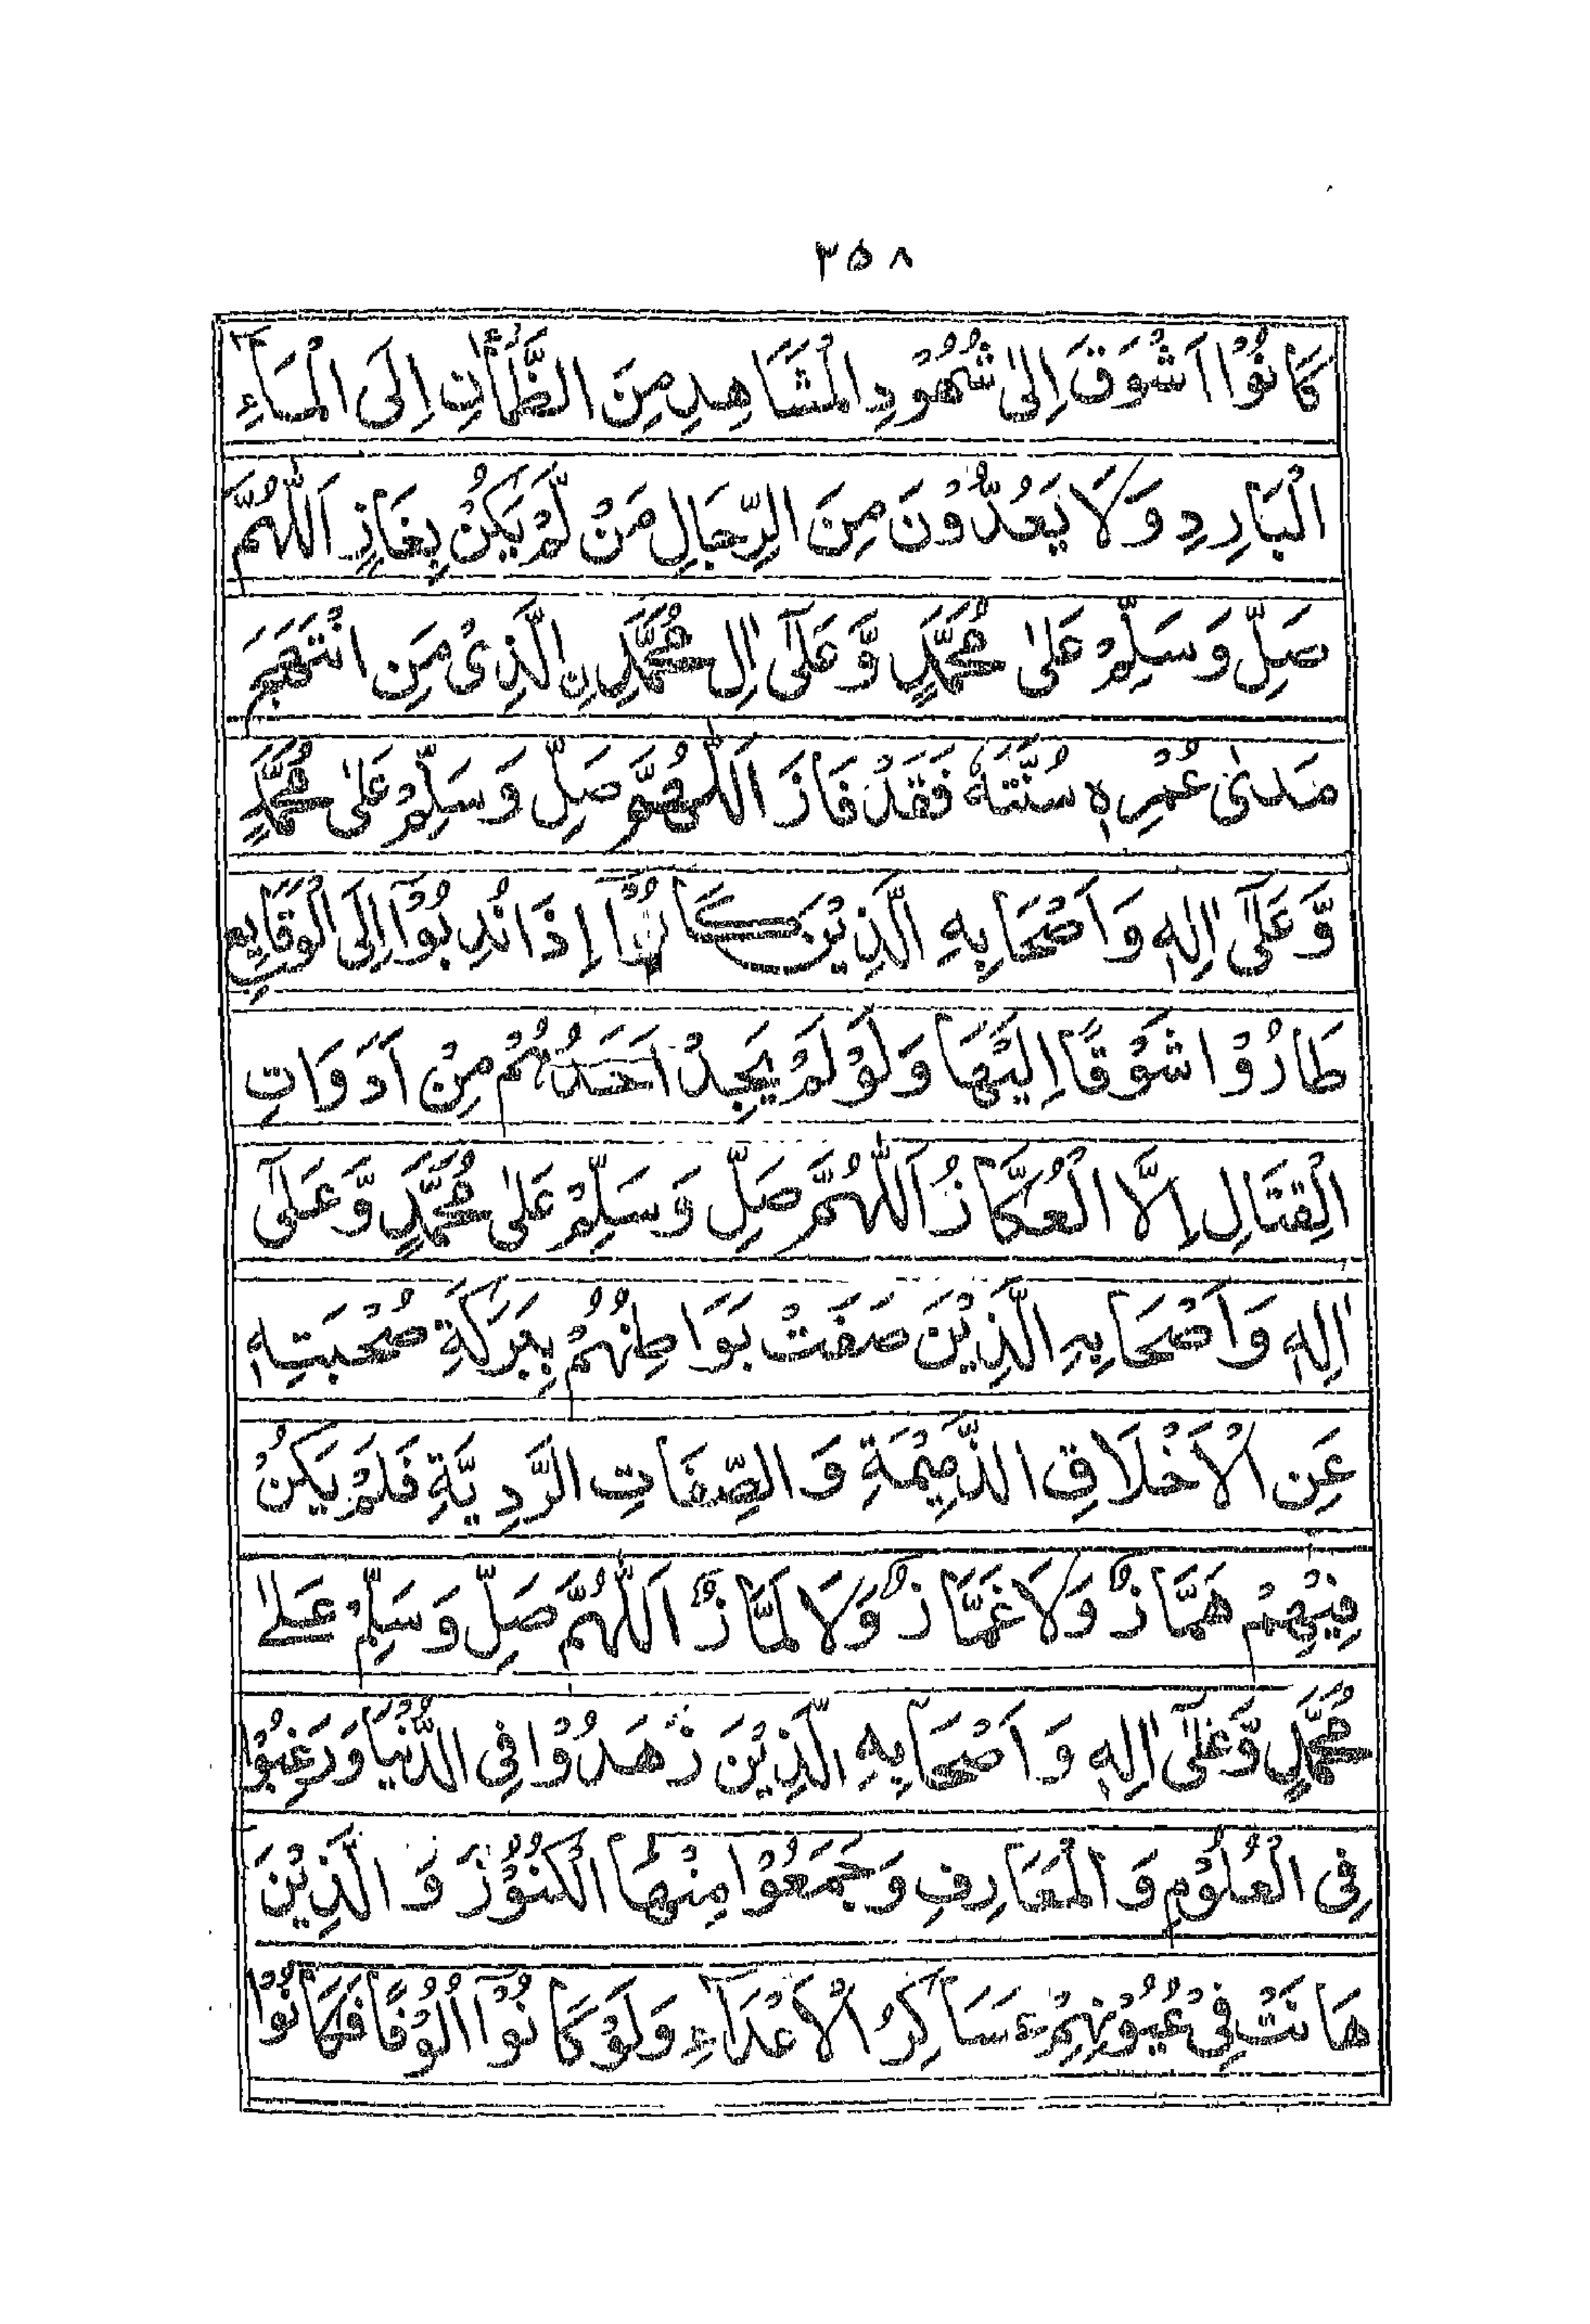 ۳۵۸
كَانُوْا اَشْوَقَ اِلٰى شُهُوْدِ الْمَشَاهِدِ مِنَ الظَّمْأٰنِ اِلَى الْمَآءِ
الْبَارِدِ وَلَا يَعُدُّوْنَ مِنَ الرِّجَالِ مَنْ لَّمْ يَكُنْ بِغَازٍ اَللّٰهُمَّ
صَلِّ وَسَلِّمْ عَلٰى مُحَمَّدٍ وَّعَلٰٓى اٰلِ مُحَمَّدِ نِ الَّذِىْ مَنِ انْتَهَجَ
مَدٰى عُمْرِهٖ سُنَّتَهٗ فَقَدْ فَازَ اَللّٰهُمَّ صَلِّ وَسَلِّمْ عَلٰى مُحَمَّدٍ
وَّعَلٰٓى اٰلِهٖ وَاَصْحَابِهِ الَّذِيْنَ كَانُوْٓا اِذَا نُدِبُوْٓا اِلَى الْوَقَايِعِ
طَارُوْا شَوْقًا اِلَيْهَا وَلَوْ لَمْ يَجِدْ اَحَدُهُمْ مِنْ اَدَوَاتِ
الْقِتَالِ اِلَّا الْعُكَّازُ اَللّٰهُمَّ صَلِّ وَسَلِّمْ عَلٰى مُحَمَّدٍ وَّعَلٰٓى
اٰلِهٖ وَاَصْحَابِهِ الَّذِيْنَ صَفَتْ بَوَاطِنُهُمْ بِبَرَكَةِ صُحْبَتِهٖ
عَنِ الْاَخْلَاقِ الذَّمِيْمَةِ وَالصِّفَاتِ الرَّدِيَّةِ فَلَمْ يَكُنْ
فِيْهِمْ هَمَّازٌ وَلَا غَمَّازٌ وَلَا لَمَّازٌ اَللّٰهُمَّ صَلِّ وَسَلِّمْ عَلٰى
مُحَمَّدٍ وَّعَلٰٓى اٰلِهٖ وَاَصْحَابِهِ الَّذِيْنَ زَهَدُوْا فِى الدُّنْيَا وَرَغِبُوْا
فِى الْعُلُوْمِ وَالْمَعَارِفِ وَجَمَعُوْا مِنْهَا الْكُنُوْزَ وَالَّذِيْنَ
هَانَتْ فِىْ عُيُوْنِهِمْ عَسَاكِرُ الْاَعْدَآءِ وَلَوْ كَانُوْٓا اُلُوْفًا فَكَانُوْا